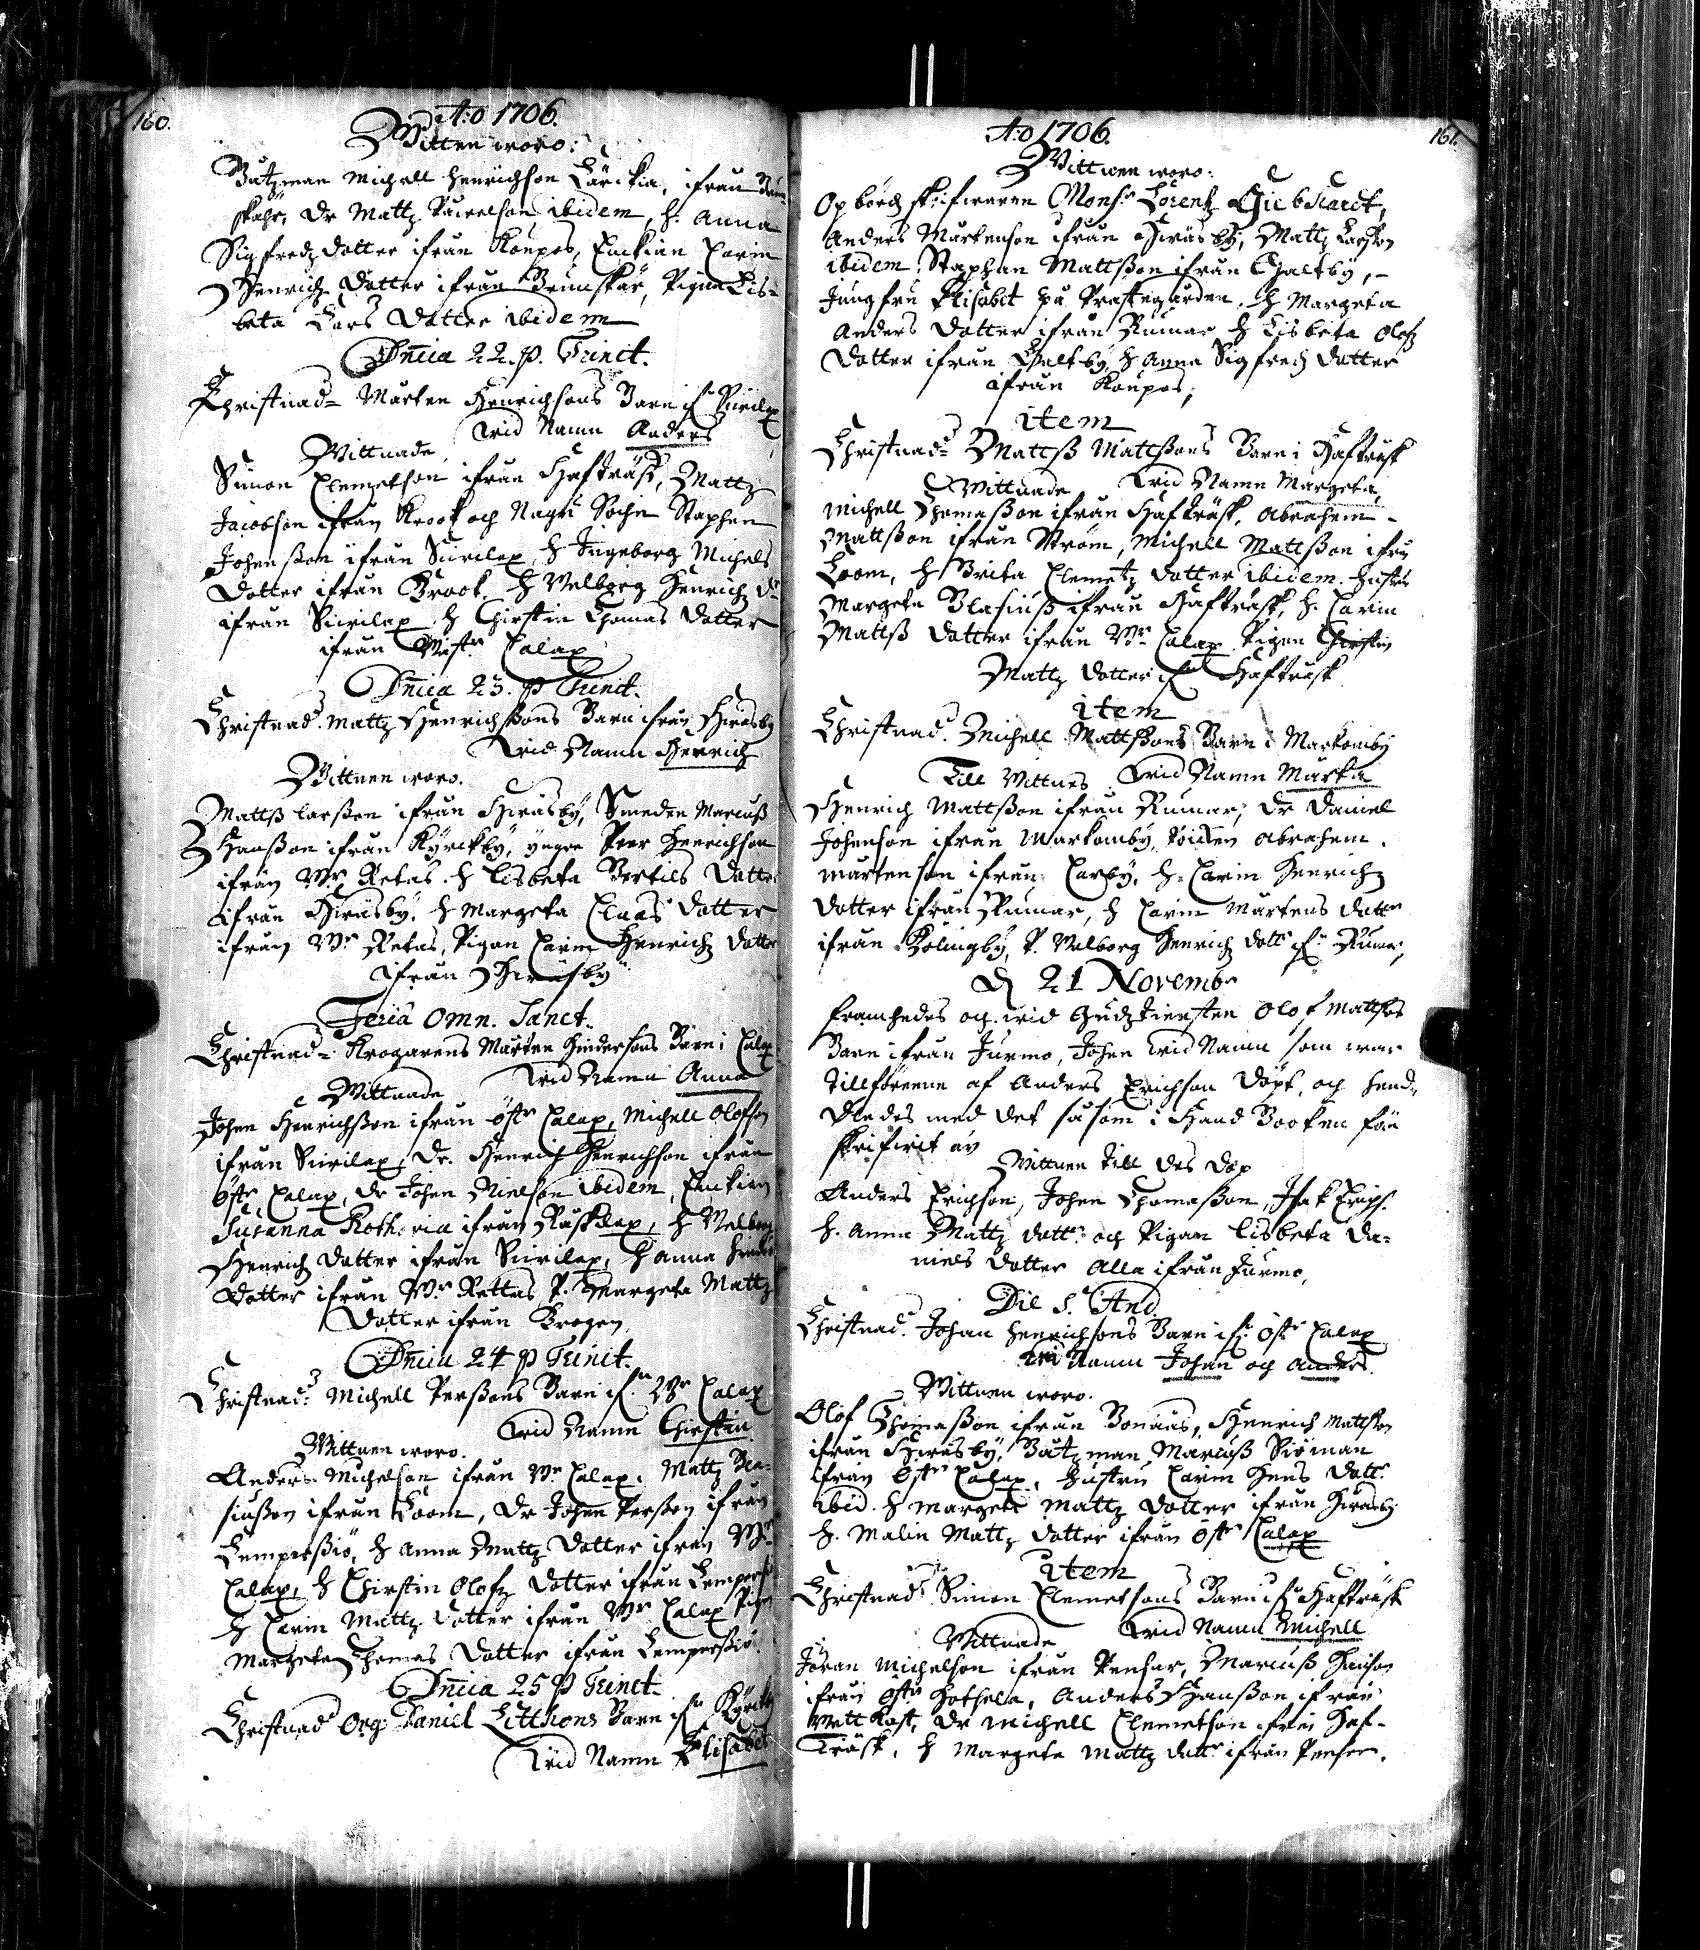 160.
A:o 1706.
Wittnen woro:
Båtzman Michell Henrichson Lärckia, ifrån
skähr, Dr Mattz Påwelson ibidem, h: Anna
Sigfredz dotter ifrån Koupos, Enckian Carin
Henrichz dotter ifrån Brunskär, Pigan Lis-
beta Lars dotter ibidem
Dnica 22. p. Trinit.
Christnad= Mårten Henrichsons Barn if Siwilax
wid Namn Anders
Wittnade
Simon Clemetson ifrån Hafträsk, Mattz
Jacobson ifrån Krook och Nagu Sochn Staphan
Johansson ifrån Siwilax, h Ingeborg Michels
dotter ifrån Krook, h Welborg Henrichz dr
ifrån Siwilax h Chirstin Thomas dotter
ifrån Wästr Calax
Dnica 23. p Trinit.
Christnad. Mattz Henrichssons Barn ifrån Hiräsby
wid Namn Henrich
Wittnen woro.
Matts Larsson ifrån Hiräsby, Smeden Marcuss
Hansson ifrån Kyrckby, yngre Peer Henrichson
ifrån Wr Retas. h Lisbeta Bertils dotter
ifrån Hiräsby. h Margeta Claas dotter
ifrån Wr Retas, Pigan Carin Henrichz dotter
ifrån Hiräsby
Feria Omn. Sanct.
Christnad= Krogarens Mårten Hindersons Barn i Calax
wid Namn Anna
Wittnade
Johan Henrichsson ifrån östr Calax, Michell Olofson
ifrån Siwilax, Dr. Henrich Henrichson ifrån
östr Calax, dr Johan Nielson ibidem, Enckian
Susanna Kotharia ifrån Räfsklax, h Welborg
Henrichz dotter ifrån Siwilax, h Anna
dotter ifrån Wr Rettas P. Margeta Mattz
dotter ifrån Krogen
Dnica 24 p Trinit.
Christnad: Michell Perssons Barn if:n Wr Calax
wid Namn Chirstin
Wittnen woro.
Anders Michelson ifrån Wr Calax, Mattz Bla-
siusson ifrån Loom, Dr Johan Persson ifrån
Lempersiö, h Anna Mattz dotter ifrån Wr
Calax, h Chirstin Olofz dotter ifrån Lempersiö
h Carin Mattz dotter ifrån Wr Calax Pigan
Margeta Thomas dotter ifrån Lempersiö
Dnica 25 p Trinit.
Christnad Org: Daniel Litthons Barn ifn Kyrckby
wid Namn Elisabet
161.
A:o 1706.
Wittnen woro.
Opbördz skrifwaren Monsr Lorentz Giebhardt,
Anders Mårtenson ifrån Hiräsby, Mattz Larsson
ibidem, Staphan Mattsson ifrån Gyttby,
Jungfru Elisabet på Prästegården. h Margeta
Anders dotter ifrån Rumar h Lisbeta Olofz
dotter ifrån h Anna Sigfredz dotter
ifrån Koupos;
item
Christnad= Matts Mattssons Barn i Hafträsk
Wittnade wid Namn Margeta,
Michell Thomasson ifrån Hafträsk, Abraham
Mattsson ifrån Ström, Michell Mattsson ifrn
Loom, h Brita Clemetz dotter ibidem. Hustru
Margeta Blasiuss ifrån Hafträsk, h. Carin
Matts dotter ifrån Wr Calax Pigan Chirstin
Mattz dotter if Hafträsk
item
Christnad. Michell Mattssons Barn i Markomby
Till Wittnes wid Namn Marta
Henrich Mattsson ifrån Rumar, Dr Daniel
Johanson ifrån Markomby, Abraham
Mårtenson ifrån Carby, h. Carin Henrichz
dotter ifrån Rumar, h Carin Mårtens dotter
ifrån Kolingby, P. Welborg Henrichz dottr if Rumar,
D 21 Novembr
framhades och wid Gudztiensten Olof Mattsos
Barn ifrån Jurmo, Johan wid Namn som war
tillförenne af Anders Erichson döpt, och hend-
lades med det såsom i Hand Booken för
skrifwit är
Wittnen till des döp
Anders Erichson, Johan Thomasson, Isak Erichs.
h. Anna Mattz dottr och Pigan Lisbeta Da-
niels dotter Alla ifrån Jurmo,
Die S. And
Christnad. Johan Henrichsons Barn if:n östr Calax
wid Namn Johan och Anders.
Wittnen woro.
Olof Thomasson ifrån Bonäås, Henrich Mattson
ifrån Hiräsby, Båtzman Marcuss Siöman
ifrån östr Calax, Hustru Carin Hans dottr
ibid. h Margeta Mattz dotter ifrån Hiräsby
h. Malin Mattz dotter ifrån östr Calax
item
Christnad: Simon Clemetsons Barn ifn Hafträsk
Wittnade wid Namn Michell
Jöran Michelson ifrån Pensar, Marcuss Hanson
ifrån östr Anders Hansson ifrån
Mattkast, Dr Michell Clemetson ifrån Haf-
träsk, h Margeta Mattz dottr ifrån Pensar.